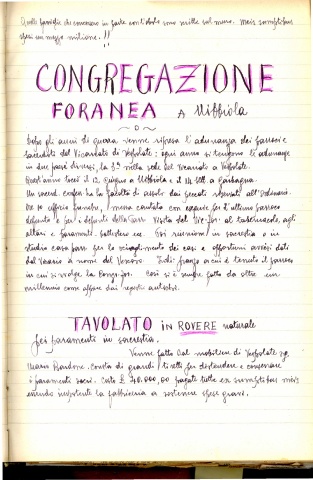 Quelle famiglie che
spesi un mezzo milione.!!
CONGREGAZIONE
FORANEA A Nibbiola
Dopo gli anni di guerra venne ripresa l'adunanza dei parroci e
sacerdoti del Vicariato di Vespolate: ogni anno si tengono le adunanze
in due paesi diversi, la 3ª nella sede del Vicariato a Vespolate.
Quest'anno toccò il 12 Giugno a Nibbiola e il 14 a Garbagna.
ha la facoltà di assolvere dai peccati riservati all'Ordinario.
Ore 10 ufficio funebre, messa cantata con esequie per l'ultimo parroco
defunto e per i defunti della Parr. Visita del Vic. for. al tabernacolo, agli
altari e paramenti, battistero ecc. Poi riunione in sacrestia o in
studio casa parr. per lo scioglimento dei casi e opportuni avvisi dati
dal Vicario a nome del Vescovo. Indi pranzo a cui è tenuto il parroco
in cui si svolge la Congr. for. Così si è sempre fatto da oltre un
millennio come appare dai registri antichi.
TAVOLATO in ROVERE naturale
pei paramenti in sacrestia.
Venne fatto dal mobiliere di Vespolate sig.
Mario Bardone. Consta di grandi tiretti per distendere e conservare
i paramenti sacri. Costò £ 40.000,00 pagate tutte ex
essendo impotente la fabbriceria a sostenere spese gravi.